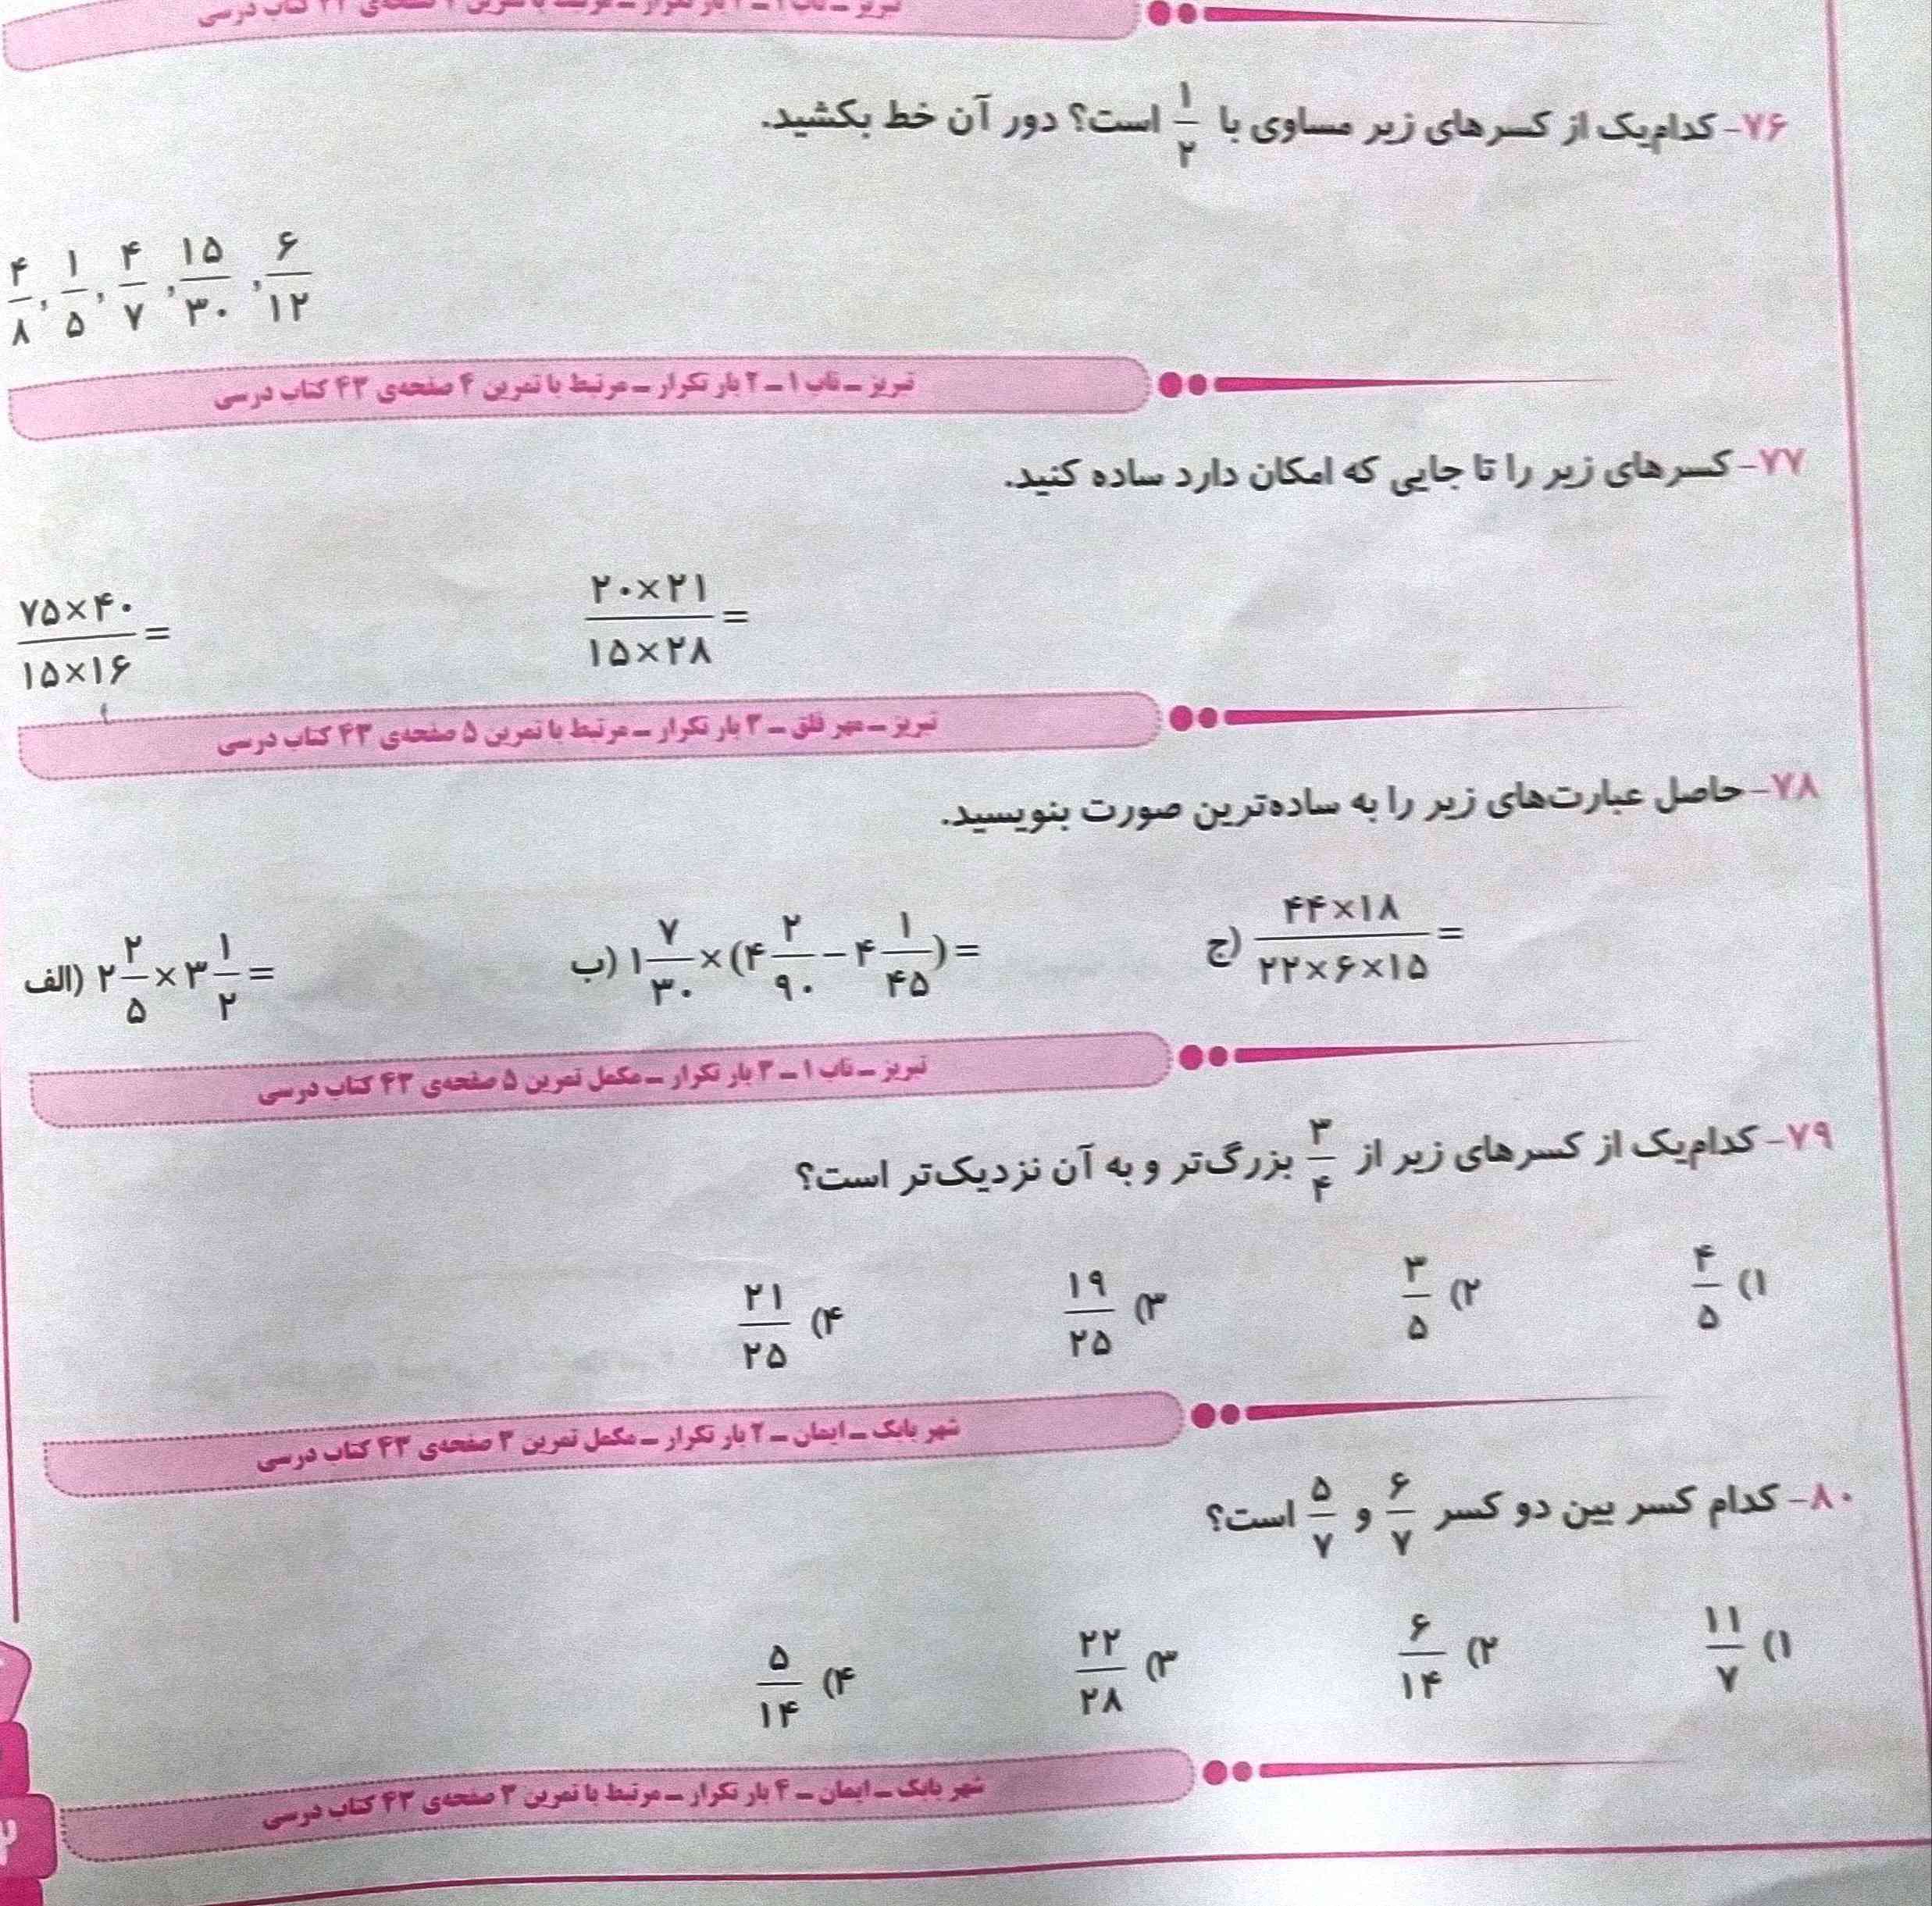 ۷۶- کدام‌یک از کسرهای زیر مساوی با ۱/۲ است؟ دور آن خط بکشید.
۴/۸ , ۱/۵ , ۴/۷ , ۱۵/۳۰ , ۶/۱۲
تبریز ــ ناب ۱ ــ ۲ بار تکرار ــ مرتبط با تمرین ۴ صفحه‌ی ۴۳ کتاب درسی
۷۷- کسرهای زیر را تا جایی که امکان دارد ساده کنید.
۷۵×۴۰/۱۵×۱۶ = ۲۰×۲۱/۱۵×۲۸ =
تبریز ــ مهر فلق ــ ۳ بار تکرار ــ مرتبط با تمرین ۵ صفحه‌ی ۴۳ کتاب درسی
۷۸- حاصل عبارت‌های زیر را به ساده‌ترین صورت بنویسید.
الف) ۲ ۲/۵ × ۳ ۱/۲ = ب) ۱ ۷/۳۰ × (۴ ۲/۹۰ − ۴ ۱/۴۵) = ج) ۴۴×۱۸/۲۲×۶×۱۵ =
تبریز ــ ناب ۱ ــ ۳ بار تکرار ــ مکمل تمرین ۵ صفحه‌ی ۴۳ کتاب درسی
۷۹- کدام‌یک از کسرهای زیر از ۳/۴ بزرگ‌تر و به آن نزدیک‌تر است؟
۱) ۴/۵ ۲) ۳/۵ ۳) ۱۹/۲۵ ۴) ۲۱/۲۵
شهر بابک ــ ایمان ــ ۲ بار تکرار ــ مکمل تمرین ۳ صفحه‌ی ۴۳ کتاب درسی
۸۰- کدام کسر بین دو کسر ۶/۷ و ۵/۷ است؟
۱) ۱۱/۷ ۲) ۶/۱۴ ۳) ۲۲/۲۸ ۴) ۵/۱۴
شهر بابک ــ ایمان ــ ۴ بار تکرار ــ مرتبط با تمرین ۳ صفحه‌ی ۴۳ کتاب درسی